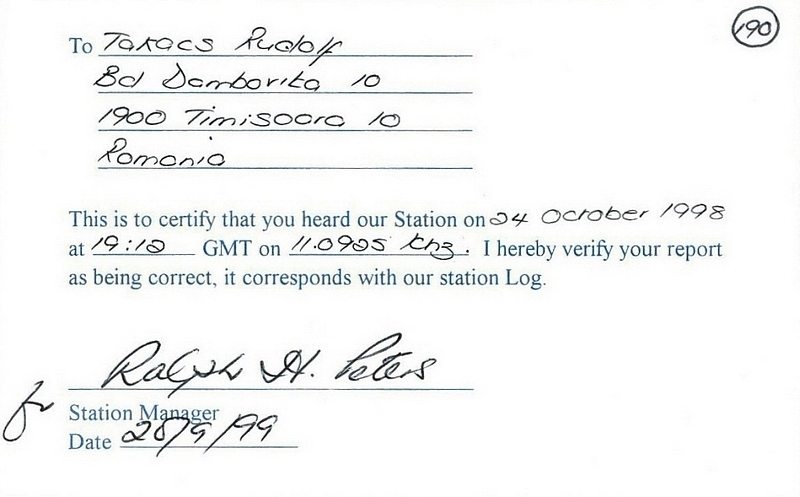 190
To Takacs Rudolf
Bd Dambovita 10
1900 Timisoara 10
Romania
This is to certify that you heard our Station on 24 October 1998
at 19:12 GMT on 11.0925 khz. I hereby verify your report
as being correct, it corresponds with our station Log.
Ralph H. Peters
for Station Manager
Date 28/9/99